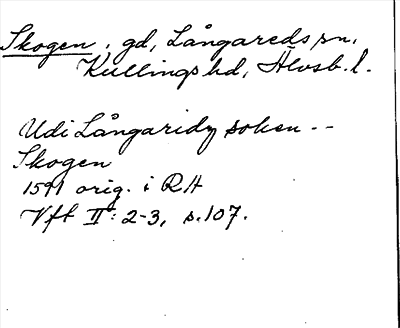 Skogen, gd, Långareds sn,
Kullings hd, Älvsb. l.
Udi Långaridz soken --
Skogen
1591 orig. i RA
Vft II: 2-3, s. 107.